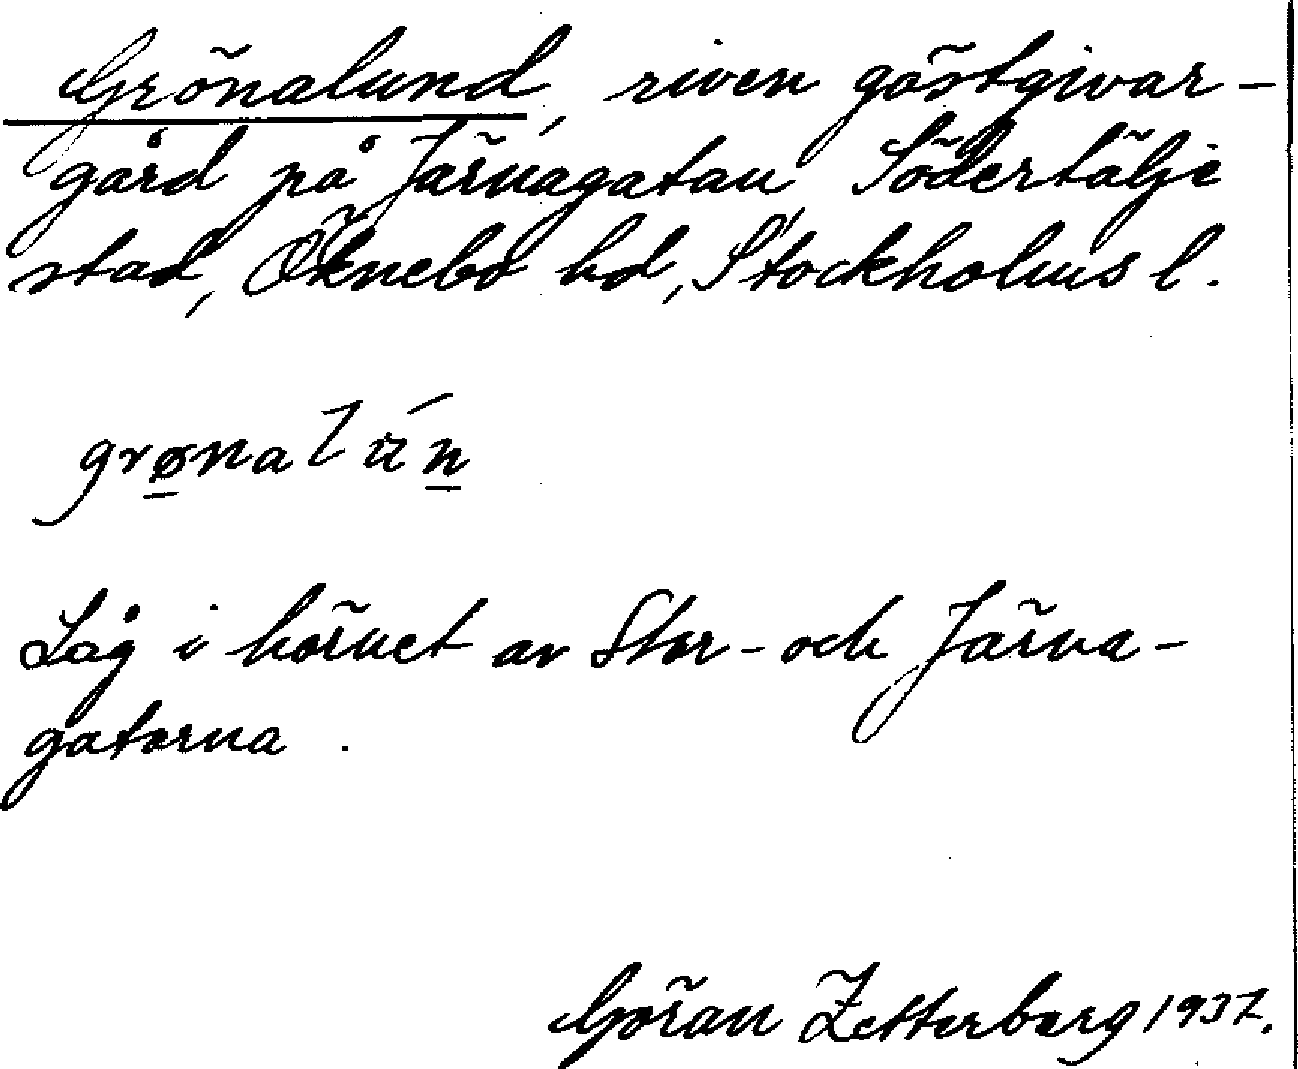 Grönalund, riven gästgivar-
gård på Järnagatan, Södertälje
stad, Öknebo hd, Stockholms l.
grønalún
Låg i hörnet av Stor- och Järna-
gatorna.
Göran Zetterberg 1937.